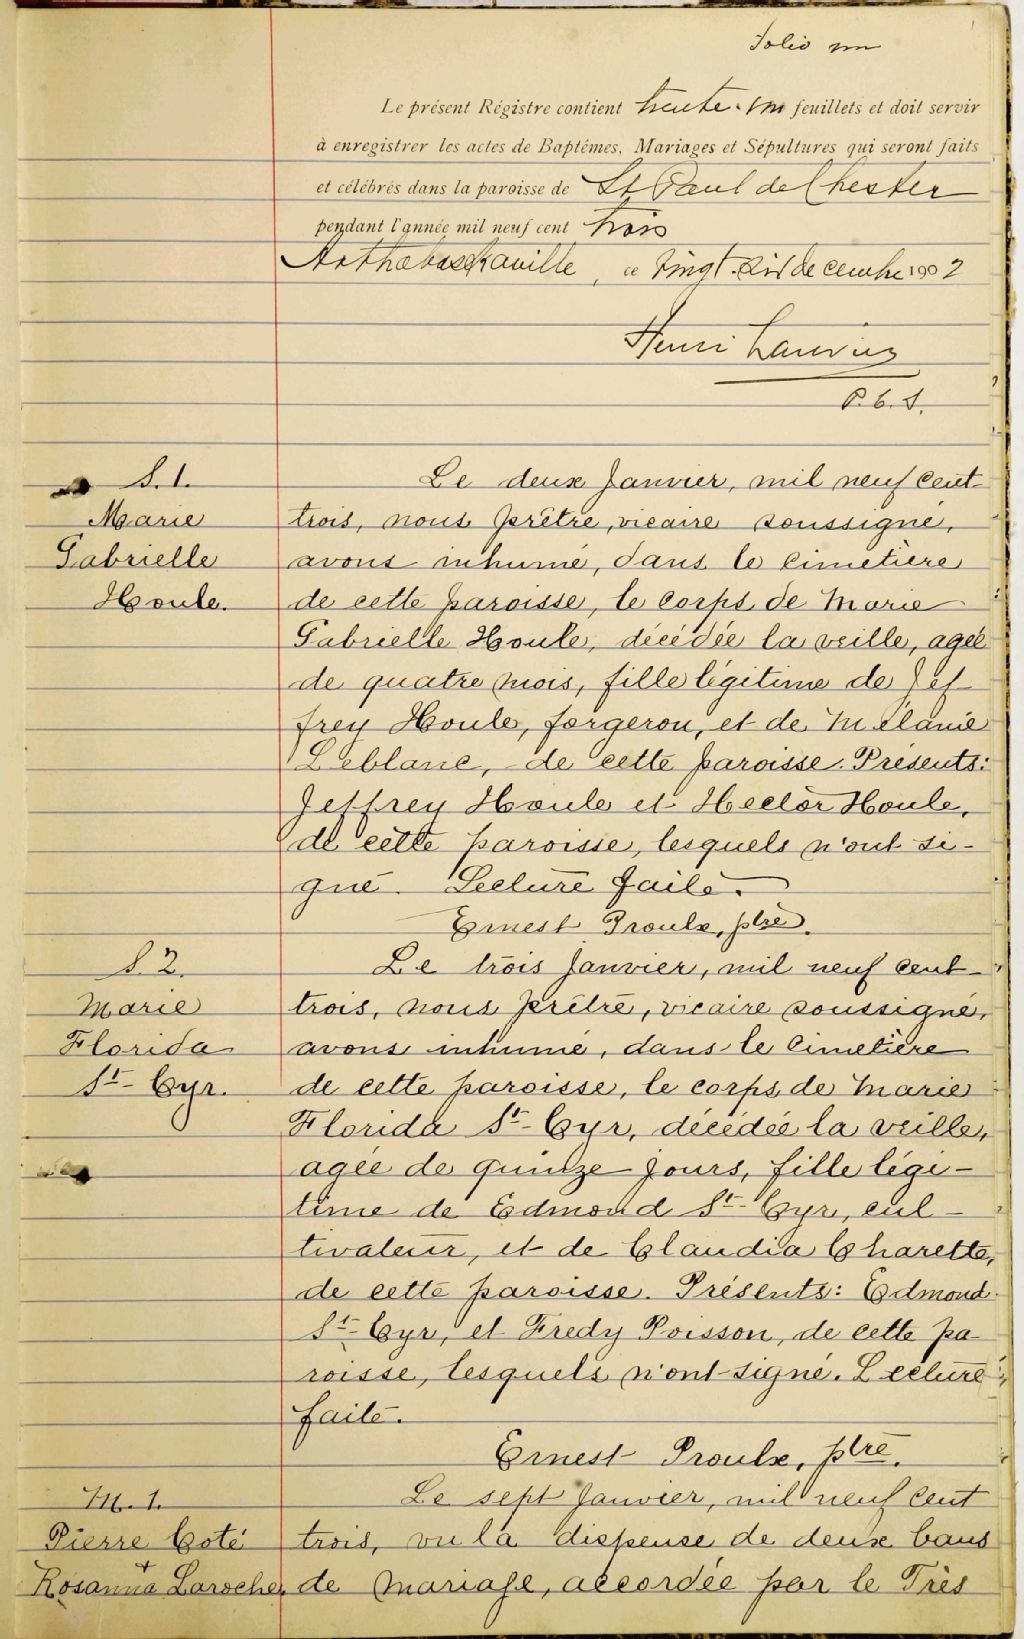 Folio un
Le présent Régistre contient trente-un feuillets et doit servir
à enregistrer les actes de Baptêmes, Mariages et Sépultures qui seront faits
et célébrés dans la paroisse de St Paul de Chester
pendant l'année mil neuf cent trois
Arthabaskaville, ce vingt-six decembre 1902
Henri Lauvier
P.C.S.
S. 1.
Marie
Gabrielle
Houle.
Le deux Janvier, mil neuf cent
trois, nous prêtre, vicaire soussigné,
avons inhumé, dans le Cimetière
de cette paroisse, le corps de Marie
Gabrielle Houle, décédée la veille, agée
de quatre mois, fille légitime de Jef-
frey Houle, forgeron, et de Mélanie
Leblanc, de cette paroisse. Présents:
Jeffrey Houle et Hector Houle,
de cette paroisse, lesquels n'ont si-
gné. Lecture faite.
Ernest Proulx, ptre.
S. 2.
Marie
Florida
St-Cyr.
Le trois Janvier, mil neuf cent
trois, nous prêtre, vicaire soussigné,
avons inhumé, dans le Cimetière
de cette paroisse, le corps de Marie
Florida St-Cyr, décédée la veille,
agée de quinze jours, fille légi-
time de Edmond St-Cyr, cul-
tivateur, et de Claudia Charette,
de cette paroisse. Présents: Edmond
St-Cyr, et Fredy Poisson, de cette pa
roisse, lesquels n'ont signé. Lecture
faite.
Ernest Proulx, ptre.
M. 1.
Pierre Coté
+
Rosanna Laroche.
Le sept Janvier, mil neuf cent
trois, vu la dispense de deux bans
de mariage, accordée par le Très